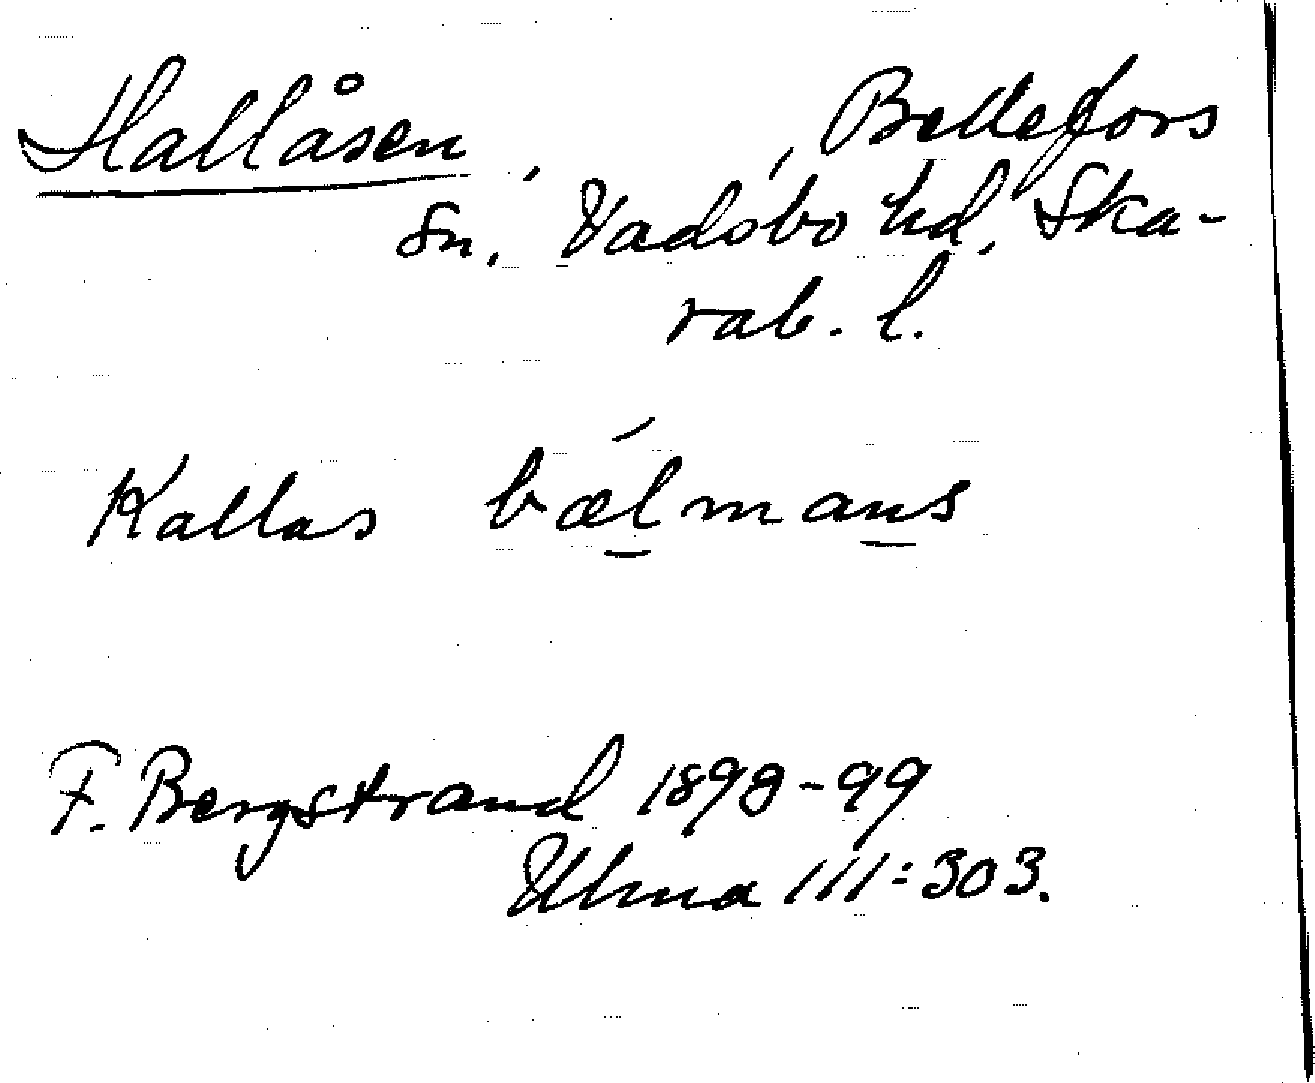 Hallåsen, , Bellefors
sn. Vadsbo hd, Ska-
rab. l.
Kallas bǽlmans
F. Bergstrand 1898-99
Ulma 111:303.